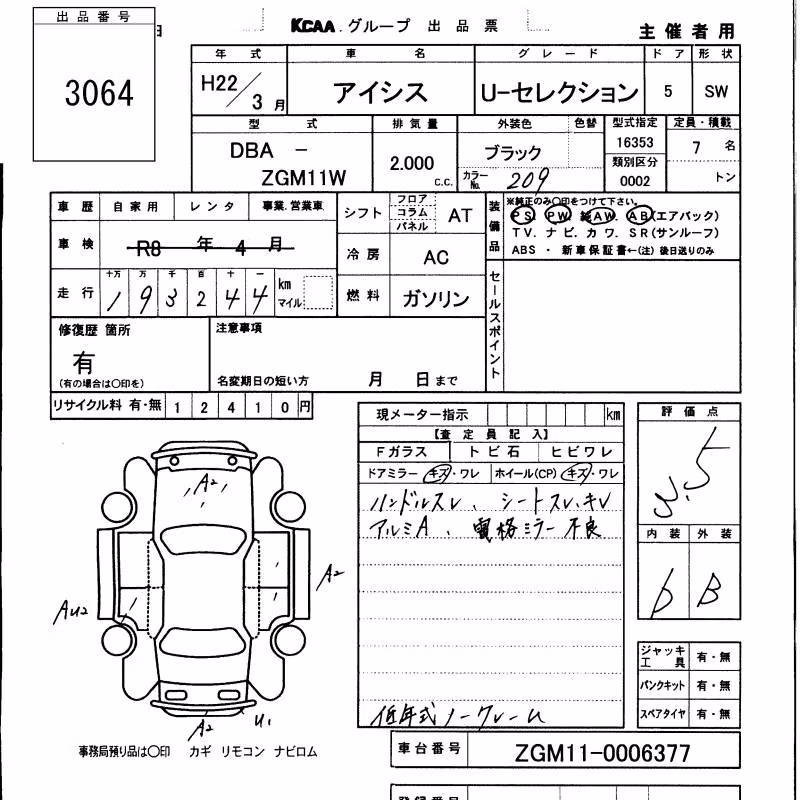 出品番号
KCAA.グループ 出品票
主催者用
3064
年式 車名 グレード ドア 形状
H22/3月 アイシス U-セレクション 5 SW
型式 排気量 外装色 色替 型式指定 定員・積載
DBA - ZGM11W 2.000 C.C. ブラック 16353 7 名
カラーNo. 209 類別区分 0002 トン
車歴 自家用 レンタ 事業.営業車
シフト フロア コラム パネル AT
装備品 ※純正のみ○印をつけて下さい。
PS PW 純AW. AB(エアバック)
TV. ナビ. カワ. SR(サンルーフ)
ABS ・ 新車保証書←(注) 後日送りのみ
車検 R8 年 4 月
冷房 AC
走行 十万 万 千 百 十 一
1 9 3 2 4 4 km マイル
燃料 ガソリン
セールスポイント
修復歴 箇所 注意事項
有
(有の場合は○印を) 名変期日の短い方 月 日まで
リサイクル料 有・無 1 2 4 1 0 円
現メーター指示 km
評価点
【査定員記入】
3.5
Fガラス トビ石 ヒビワレ
ドアミラー キズ・ワレ ホイール(CP) キズ・ワレ
ハンドルスレ、シートスレ、キレ
アルミA、電格ミラー不良
内装 外装
D B
A2
A2
AU2
A2 U1
ジャッキ工具 有・無
パンクキット 有・無
スペアタイヤ 有・無
低年式ノークレーム
事務局預り品は○印 カギ リモコン ナビロム
車台番号 ZGM11-0006377